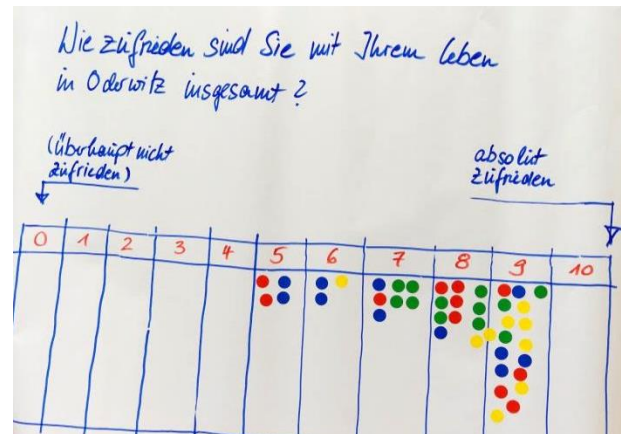 Wie zufrieden sind Sie mit Ihrem Leben
in Oderwitz insgesamt?
(überhaupt nicht
zufrieden)
absolut
zufrieden
0 1 2 3 4 5 6 7 8 9 10